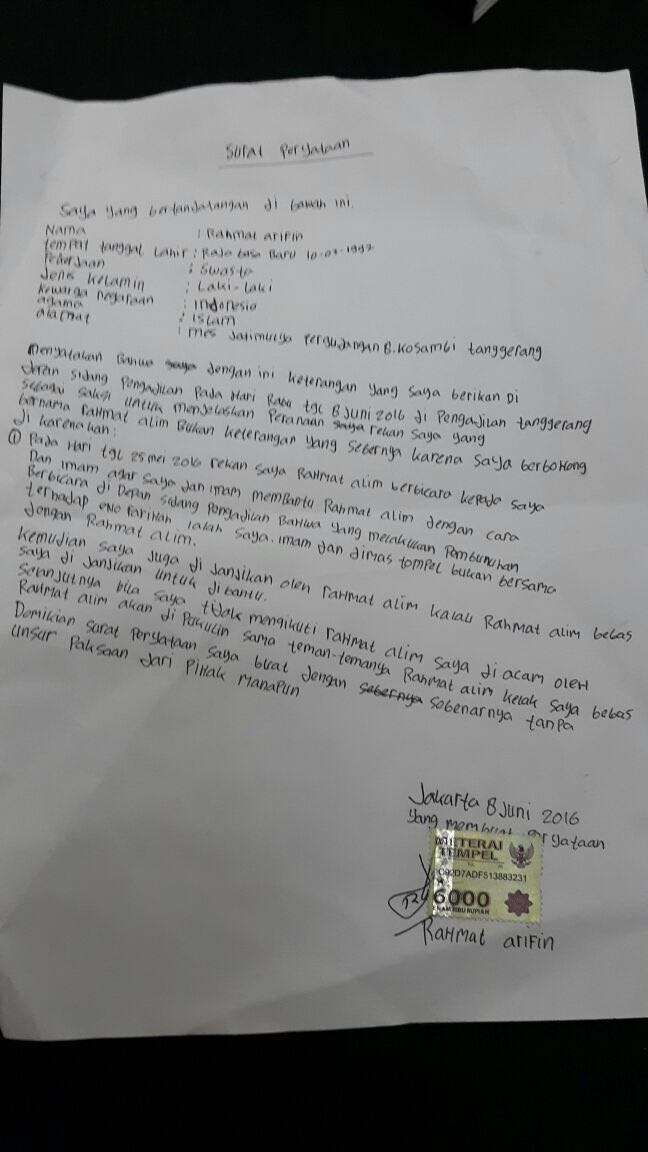 Surat Peryataan
Saya yang bertandatangan di bawah ini.
Nama : Rahmat arifin
tempat tanggal Lahir : Raja basa Baru 10-07-1992
Pekerjaan : Swasta
Jenis kelamin : Laki-laki
kewarga negaraan : indonesia
agama : islam
alamat : mes Jatimulya Pergudangan B.kosambi tanggerang
menyatakan Bahwa saya dengan ini keterangan yang saya berikan Di
depan sidang Pengadilan Pada Hari Rabu tgl 8 Juni 2016 di Pengadilan tanggerang
sebagai saksi untuk menjelaskan Peranaan saya rekan saya yang
bernama rahmat alim Bukan keterangan yang sebernya karena saya berbohong
di karenakan:
① Pada Hari tgl 25 mei 2016 rekan saya Rahmat alim berbicara kepada saya
Dan imam agar saya dan imam membantu Rahmat alim dengan cara
Berbicara di Depan sidang Pengadilan Bahwa yang melakukan Pembunuhan
terhadap eno farihah ialah saya. imam dan dimas tompel bukan bersama
dengan Rahmat alim.
kemudian saya juga di janjikan oleh rahmat alim kalau Rahmat alim bebas
saya di janjikan untuk dibantu.
selanjutnya bila saya tidak mengikuti rahmat alim saya di acam oleh
Rahmat alim akan di Pukulin sama teman-temanya Rahmat alim kelak saya bebas
Demikian surat Peryataan saya buat dengan sebernya sebenarnya tanpa
unsur Paksaan dari Pihak manapun
Jakarta 8 Juni 2016
yang membuat Peryataan
METERAI
TEMPEL
C92D7ADF513883231
6000
ENAM RIBU RUPIAH
Rahmat arifin